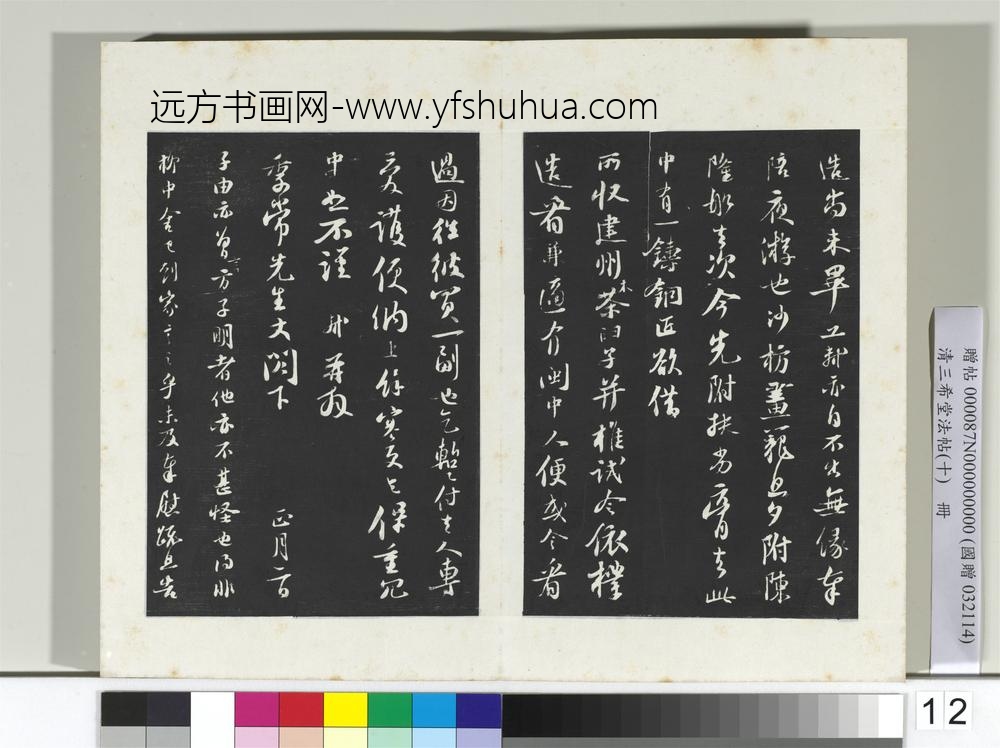 远方书画网-www.yfshuhua.com
造尚未畢工軾亦自不出無緣奉
陪夜游也沙枋畫籠旦夕附陳
隆船去次今先附扶劣膏去此
中有一鑄銅匠欲借
所收建州木茶臼子并椎試令依樣
造看兼適有閩中人便或令看
過因往彼買一副也乞暫付去人專
愛護便納上餘寒更乞保重冗
中恕不謹 軾再拜
季常先生丈閣下 正月二日
子由亦曾言方子明者他亦不甚怪也得非
柳中舍已到家言之乎未及奉慰疏且告
贈帖 000087N000000000 (國贈 032114)
清三希堂法帖(十) 冊
12